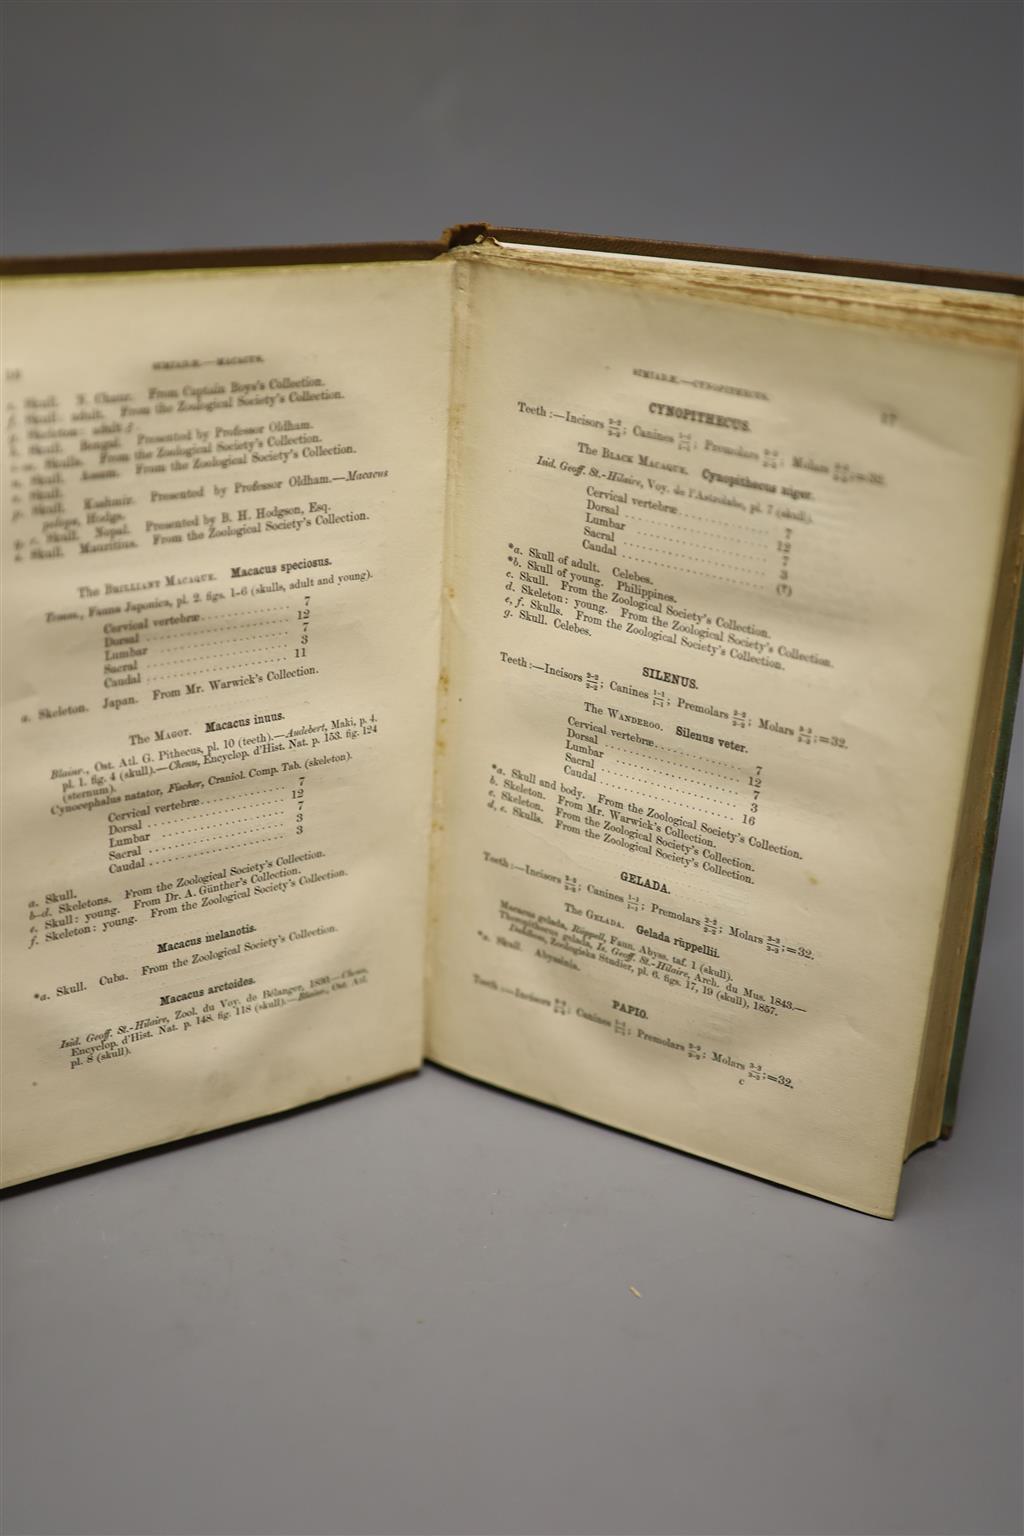 SIMIADÆ.—MACACUS.
Skull. N. Chaur. From Captain Boys's Collection.
Skull: adult. From the Zoological Society's Collection.
Skeleton: adult ♂.
Skull. Bengal. Presented by Professor Oldham.
Skulls. From the Zoological Society's Collection.
Skull. Assam. From the Zoological Society's Collection.
Skull.
Skull. Kashmir. Presented by Professor Oldham.—Macacus
pelops, Hodgs.
Skull. Nepal. Presented by B. H. Hodgson, Esq.
s. Skull. Mauritius. From the Zoological Society's Collection.
The BRILLIANT MACAQUE. Macacus speciosus.
Temm., Fauna Japonica, pl. 2. figs. 1-6 (skulls, adult and young).
Cervical vertebræ.............. 7
Dorsal .............. 12
Lumbar .............. 7
Sacral .............. 3
Caudal .............. 11
a. Skeleton. Japan. From Mr. Warwick's Collection.
The MAGOT. Macacus inuus.
Blainv., Ost. Atl. G. Pithecus, pl. 10 (teeth).—Audebert, Maki, p. 4.
pl. 1. fig. 4 (skull).—Chenu, Encyclop. d'Hist. Nat. p. 153. fig. 124
(sternum).
Cynocephalus natator, Fischer, Craniol. Comp. Tab. (skeleton).
Cervical vertebræ.............. 7
Dorsal .............. 12
Lumbar .............. 7
Sacral .............. 3
Caudal .............. 3
a. Skull.
b-d. Skeletons. From the Zoological Society's Collection.
e. Skull: young. From Dr. A. Günther's Collection.
f. Skeleton: young. From the Zoological Society's Collection.
Macacus melanotis.
*a. Skull. Cuba. From the Zoological Society's Collection.
Macacus arctoides.
Isid. Geoff. St.-Hilaire, Zool. du Voy. de Bélanger, 1830.—Chenu,
Encyclop. d'Hist. Nat. p. 148. fig. 118 (skull).—Blainv., Ost. Atl.
pl. 8 (skull).
SIMIADÆ.—CYNOPITHECUS. 17
CYNOPITHECUS.
Teeth:—Incisors 2-2/2-2; Canines 1-1/1-1; Premolars 2-2/2-2; Molars 3-3/3-3;=32.
The BLACK MACAQUE. Cynopithecus niger.
Isid. Geoff. St.-Hilaire, Voy. de l'Astrolabe, pl. 7 (skull).
Cervical vertebræ.............. 7
Dorsal .............. 12
Lumbar .............. 7
Sacral .............. 3
Caudal .............. (?)
*a. Skull of adult. Celebes.
*b. Skull of young. Philippines.
c. Skull. From the Zoological Society's Collection.
d. Skeleton: young. From the Zoological Society's Collection.
e, f. Skulls. From the Zoological Society's Collection.
g. Skull. Celebes.
SILENUS.
Teeth:—Incisors 2-2/2-2; Canines 1-1/1-1; Premolars 2-2/2-2; Molars 3-3/3-3;=32.
The WANDEROO. Silenus veter.
Cervical vertebræ.............. 7
Dorsal .............. 12
Lumbar .............. 7
Sacral .............. 3
Caudal .............. 16
*a. Skull and body. From the Zoological Society's Collection.
b. Skeleton. From Mr. Warwick's Collection.
c. Skeleton. From the Zoological Society's Collection.
d, e. Skulls. From the Zoological Society's Collection.
GELADA.
Teeth:—Incisors 2-2/2-2; Canines 1-1/1-1; Premolars 2-2/2-2; Molars 3-3/3-3;=32.
The GELADA. Gelada rüppellii.
Macacus gelada, Rüppell, Faun. Abyss. taf. 1 (skull).
Theropithecus gelada, Is. Geoff. St.-Hilaire, Arch. du Mus. 1843.—
Dahlbom, Zoologiska Studier, pl. 6. figs. 17, 19 (skull), 1857.
*a. Skull. Abyssinia.
PAPIO.
Teeth:—Incisors 2-2/2-2; Canines 1-1/1-1; Premolars 2-2/2-2; Molars 3-3/3-3;=32.
C